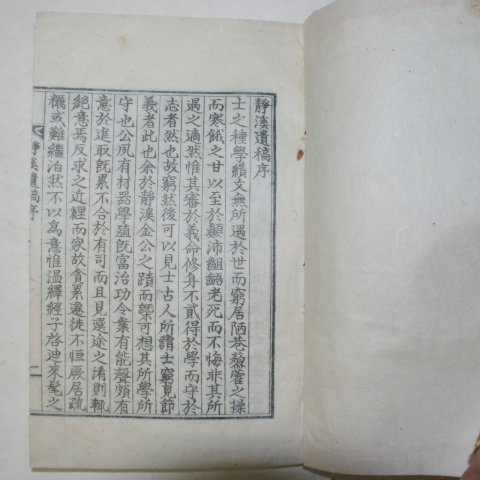 靜溪遺稿序
士之種學績文無所遇於世而窮居陋巷藜藿之操
而寒餓之甘以至於顚沛齟齬老死而不悔非其所
遇之適然惟其審於義命修身不貳得於學而守於
志者然也故窮然後可以見士古人所謂士窮見節
義者此也余於靜溪金公之蹟而槩可想其所學所
守也公夙有材器學殖旣富治功令業有能聲頗有
意於進取旣累不合於有司而且見邃途之淆則輒
絕意焉反求之近裡而家故貧累遷徙不恒厥居疏
糲或難繼泊然不以爲意惟溫繹經子啓迪來髦之
靜溪遺稿序
一